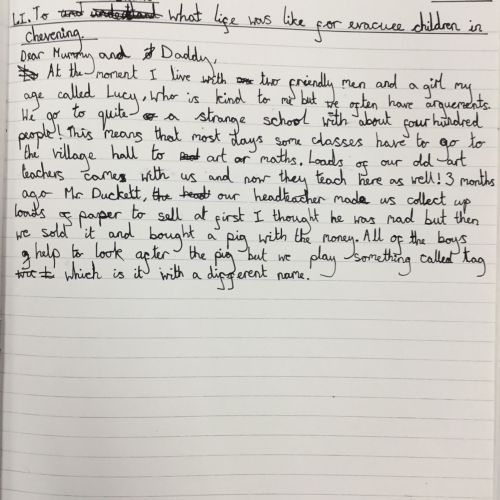 LI. To understand what life was like for evacuee children in
chevening.
Dear Mummy and Daddy,
At the moment I live with two friendly men and a girl my
age called Lucy, who is kind to me but we often have arguements.
We go to quite a strange school with about four hundred
people! This means that most days some classes have to go to
the village hall to art or maths. Loads of our old art
teachers came with us and now they teach here as well! 3 months
ago Mr Duckett, our headteacher made us collect up
loads of paper to sell at first I thought he was mad but then
we sold it and bought a pig with the money. All of the boys
help to look after the pig but we play something called tag
which is it with a different name.